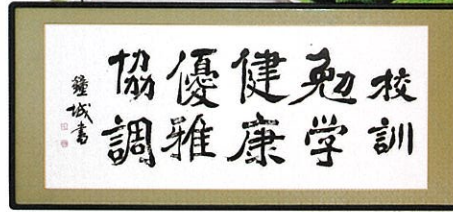 校訓
勉学
健康
優雅
協調
鐘城書